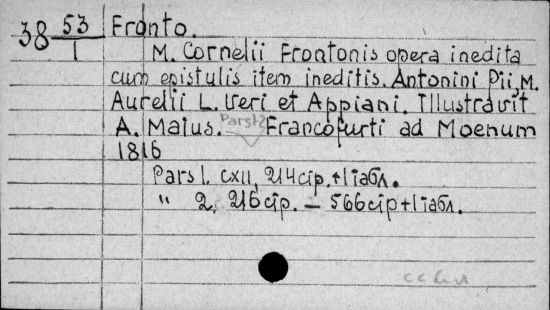 38 53/1 Fronto.
M. Cornelii Frontonis opera inedita
cum epistulis item ineditis. Antonini Pii, M.
Aurelii L. Veri et Appiani. Illustravit
Pars 1-2
A. Maius. Francofurti ad Moenum
1816
Pars 1. CXII, 214 cip. + 1 табл.
" 2. 216 cip. — 566 cip + 1 табл.